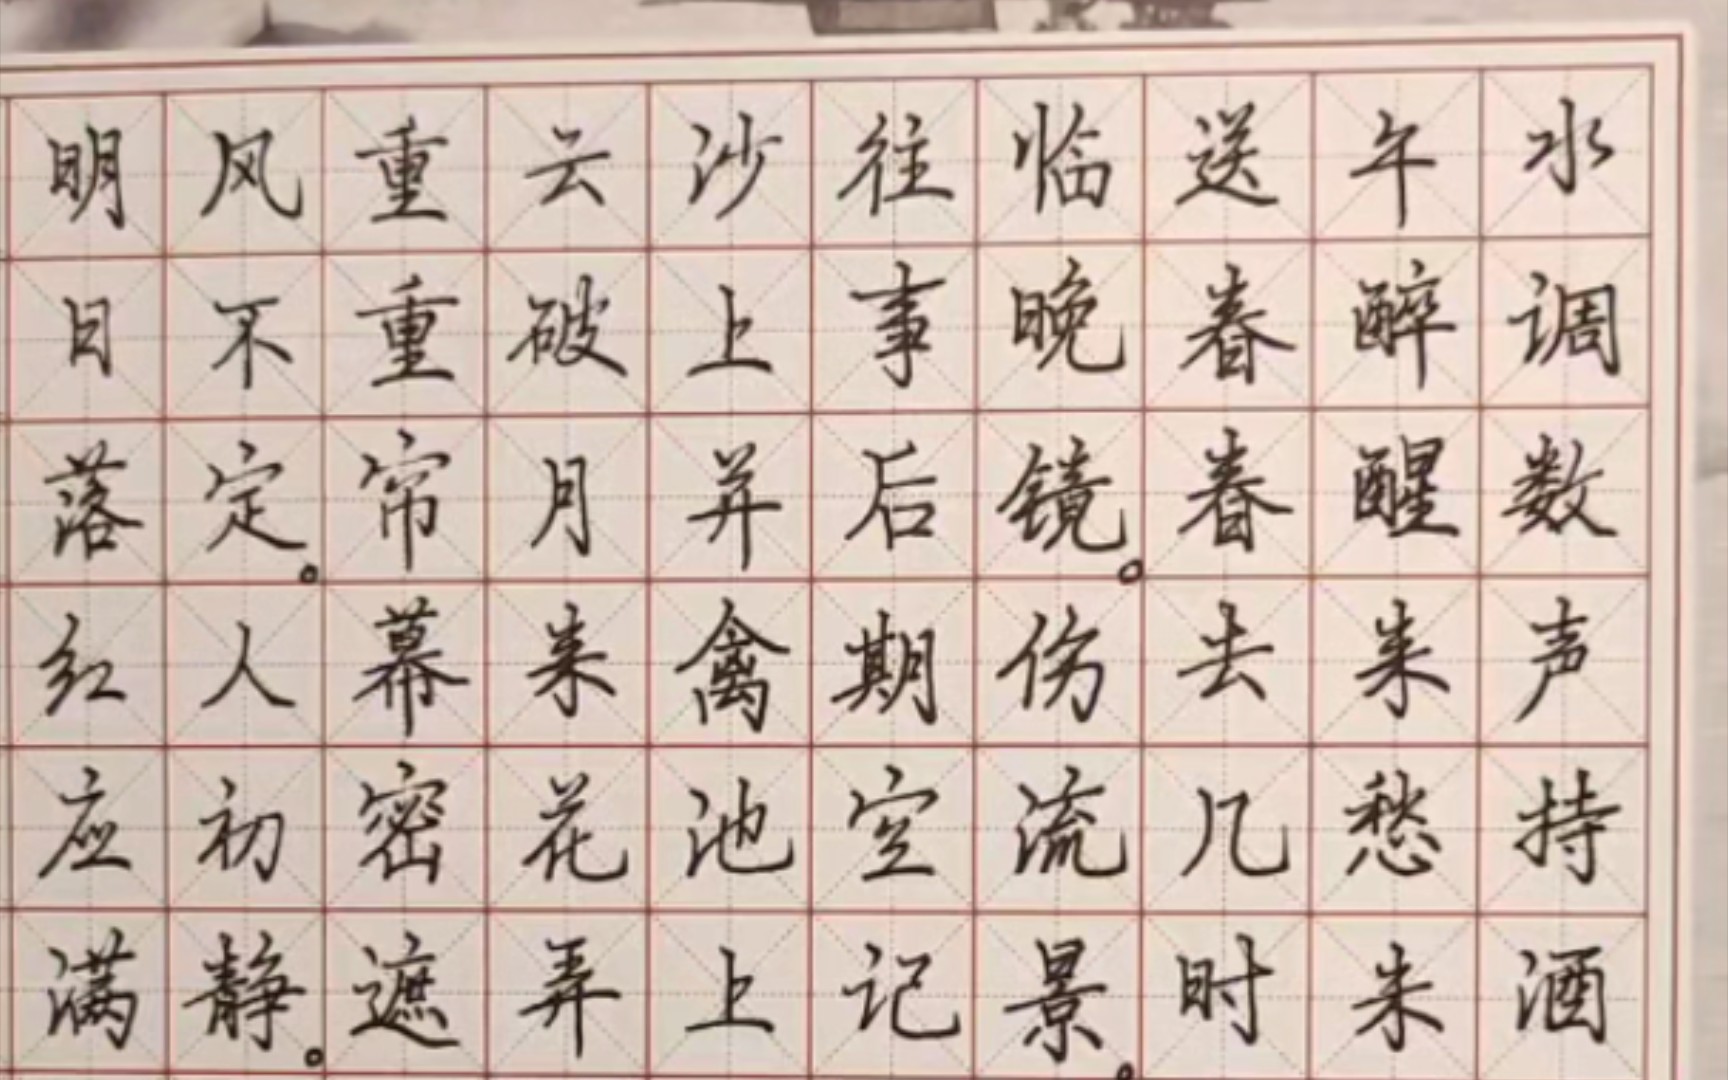 水调数声持酒
午醉醒来愁未
送春春去几时
临晚镜。伤流景。
往事后期空记
沙上并禽池上
云破月来花弄
重重帘幕密遮
风不定。人初静。
明日落红应满